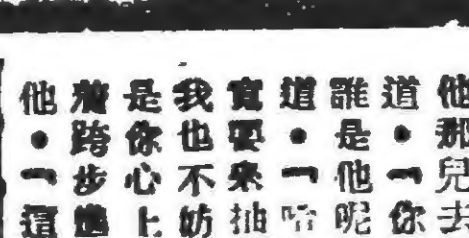 他那兒去
道•「你
誰是他呢
道•「哈
實要來抽
我也不妨
是你心上
跨步進
他•「這